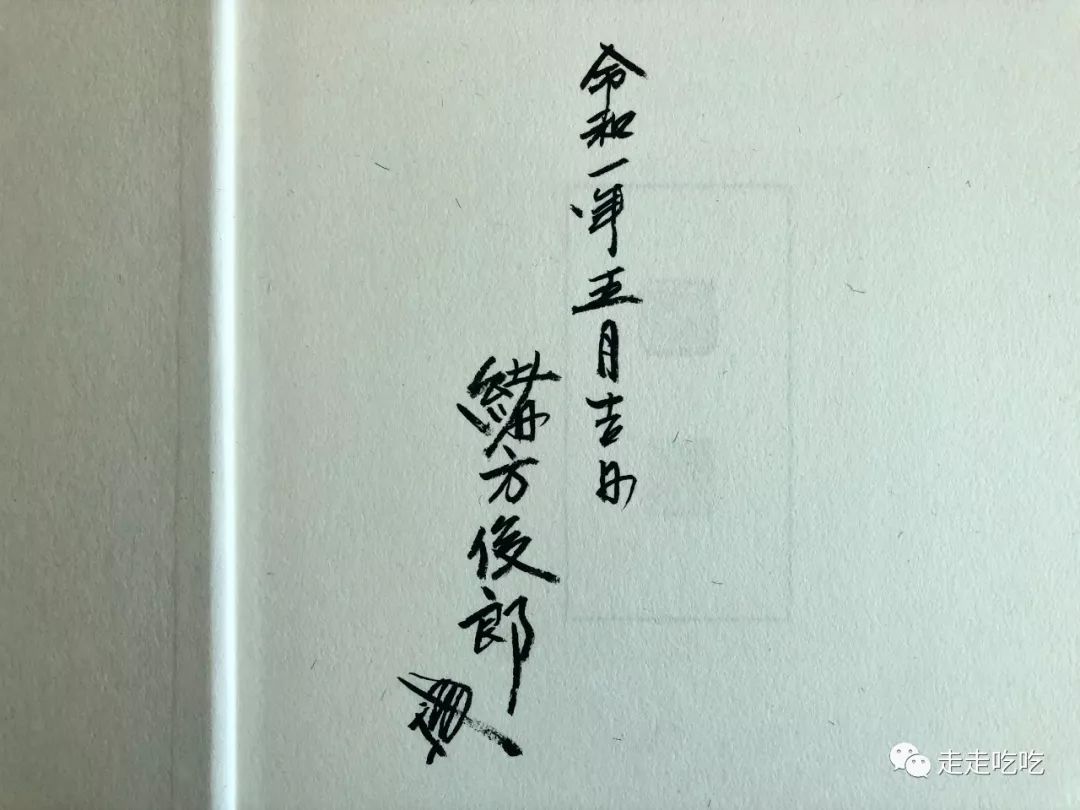 令和一年五月吉日
緒方俊郎
走走吃吃